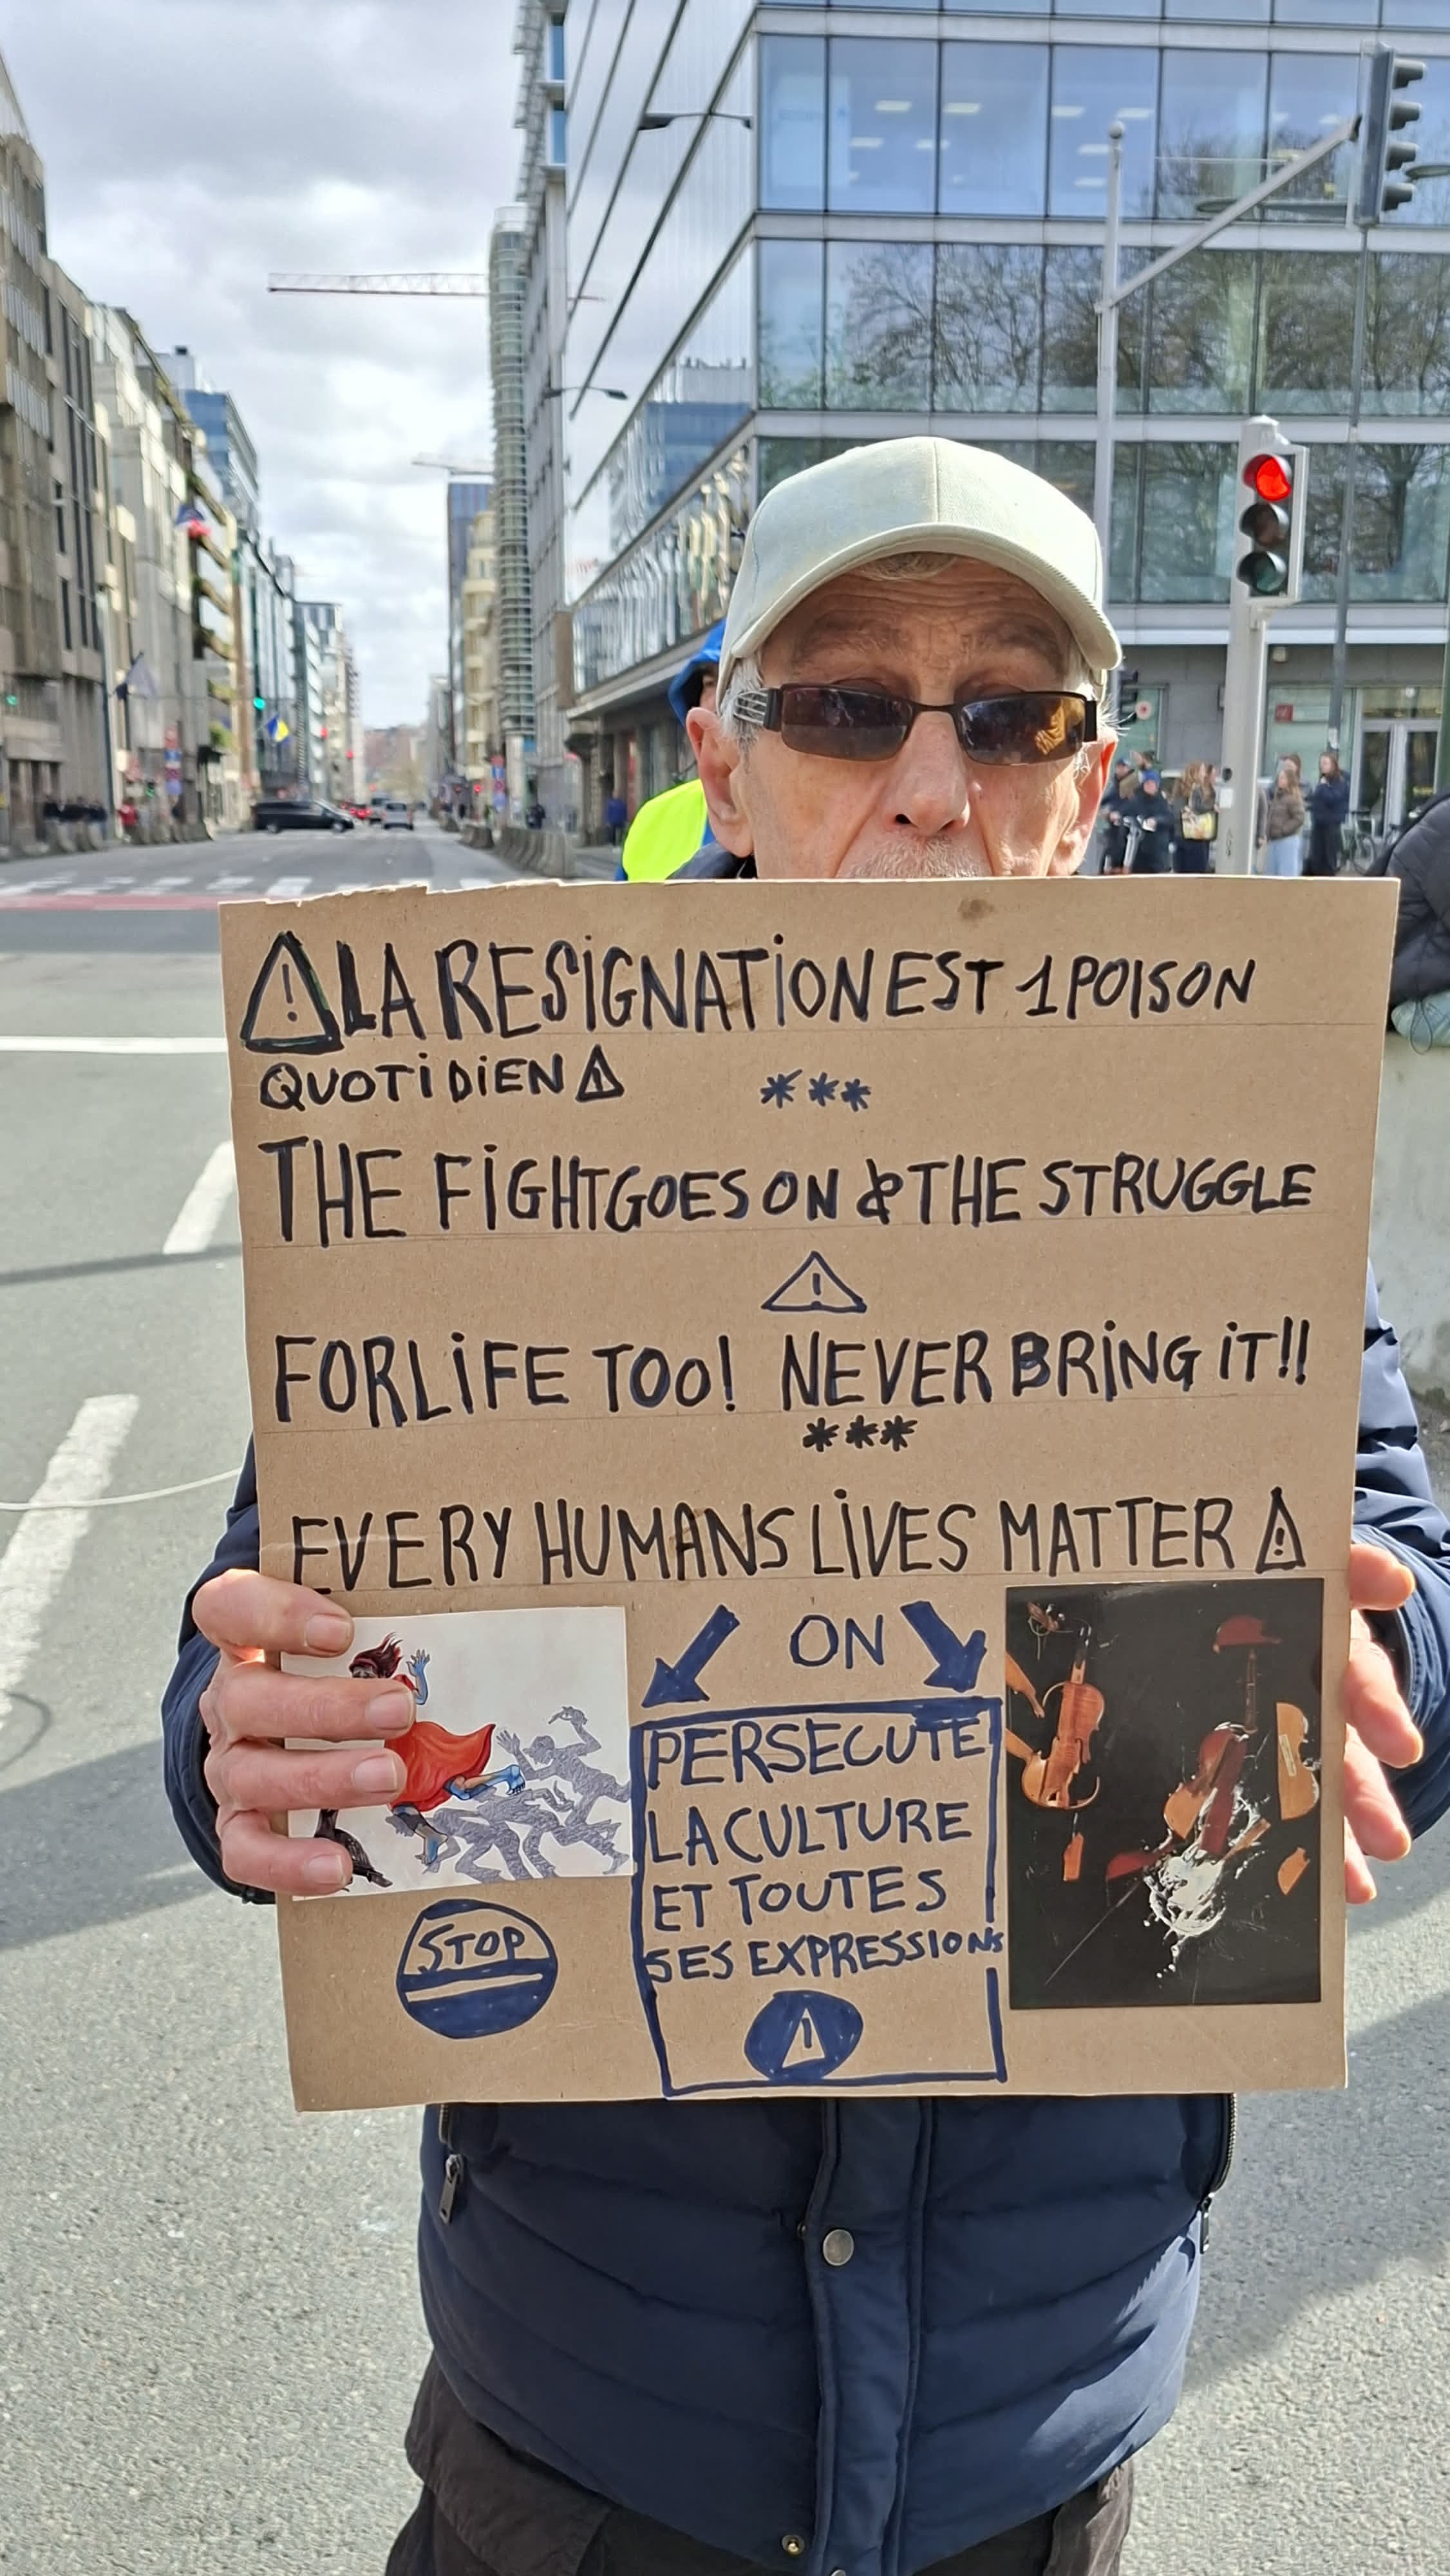 ⚠ LA RESIGNATION EST 1 POISON
QUOTIDIEN ⚠ ***
THE FIGHT GOES ON & THE STRUGGLE
⚠
FOR LIFE TOO! NEVER BRING IT!!
***
EVERY HUMANS LIVES MATTER ⚠
ON
PERSECUTE
LA CULTURE
ET TOUTES
SES EXPRESSIONS
⚠
STOP